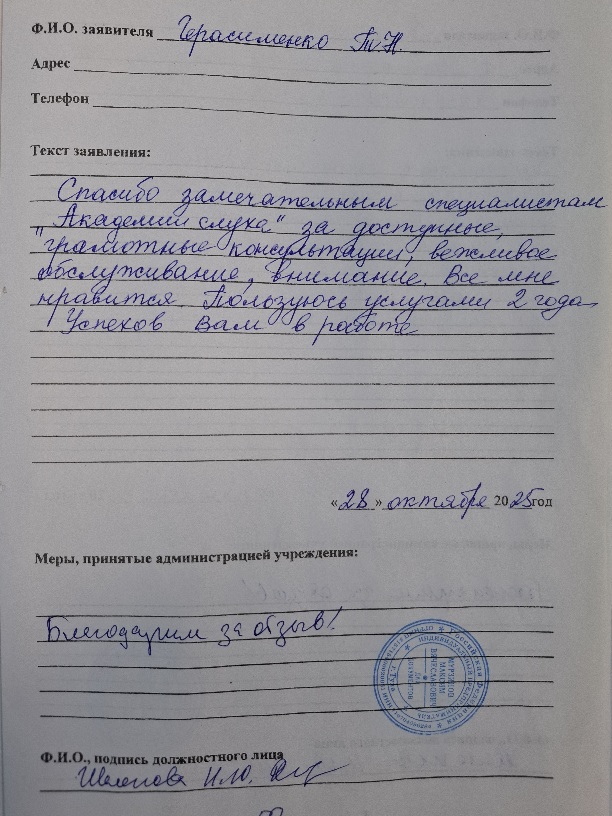 Ф.И.О. заявителя Герасименко Т.Н.
Адрес
Телефон
Текст заявления:
Спасибо замечательным специалистам
"Академии слуха" за доступные,
грамотные консультации, вежливое
обслуживание, внимание. Все мне
нравится. Пользуюсь услугами 2 года
Успехов Вам в работе
«28» октября 2025год
Меры, принятые администрацией учреждения:
Благодарим за отзыв!
Российская Федерация
ИНДИВИДУАЛЬНЫЙ ПРЕДПРИНИМАТЕЛЬ
МАКСИМ
ВЯЧЕСЛАВОВИЧ
ДЛЯ
ДОКУМЕНТОВ
Ф.И.О., подпись должностного лица
И.Ю.